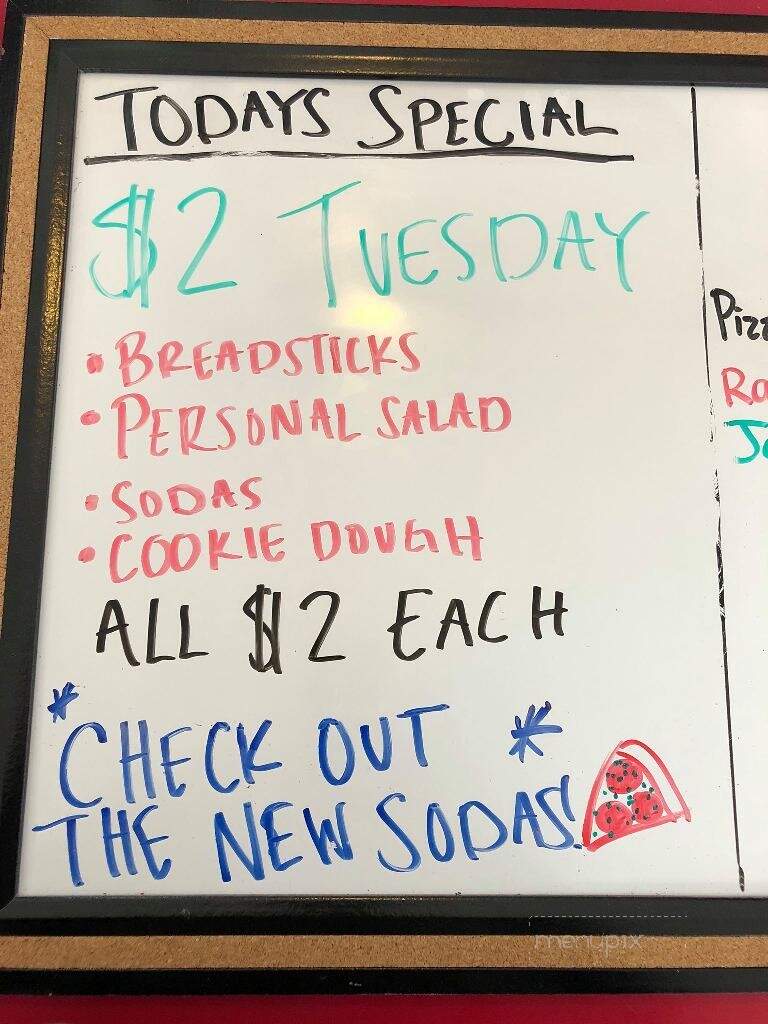 TODAYS SPECIAL
$2 TUESDAY
• BREADSTICKS
• PERSONAL SALAD
• SODAS
• COOKIE DOUGH
ALL $2 EACH
* CHECK OUT *
THE NEW SODAS!
menupix